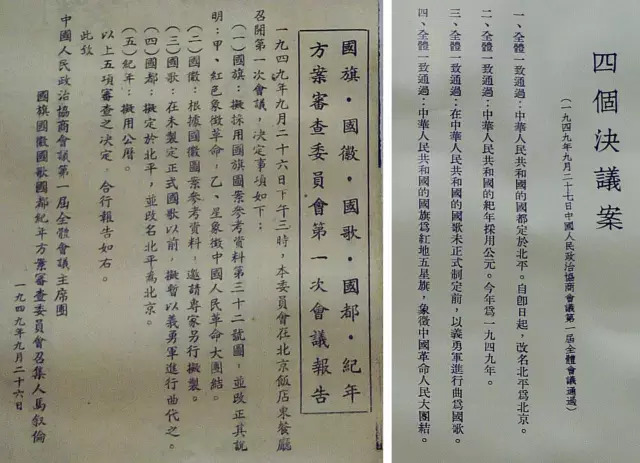 國旗·國徽·國歌·國都·紀年
方案審查委員會第一次會議報告
一九四九年九月二十六日下午三時,本委員會在北京飯店東餐廳
召開第一次會議,決定事項如下:
(一)國旗:擬採用國旗圖案參考資料第三十二號圖,並改正其說
明:甲、紅色象徵革命,乙、星象徵中國人民革命大團結。
(二)國徽:根據國徽圖案參考資料,邀請專家另行擬製。
(三)國歌:在未製定正式國歌以前,擬暫以義勇軍進行曲代之。
(四)國都:擬定於北平,並改名北平為北京。
(五)紀年:擬用公曆。
以上五項審查之決定,合行報告如右。
此致
中國人民政治協商會議第一屆全體會議主席團
國旗國徽國歌國都紀年方案審查委員會召集人馬叙倫
一九四九年九月二十六日
四個決議案
(一九四九年九月二十七日中國人民政治協商會議第一屆全體會議通過)
一、全體一致通過:中華人民共和國的國都定於北平。自卽日起,改名北平爲北京。
二、全體一致通過:中華人民共和國的紀年採用公元。今年爲一九四九年。
三、全體一致通過:在中華人民共和國的國歌未正式制定前,以義勇軍進行曲爲國歌。
四、全體一致通過:中華人民共和國的國旗爲紅地五星旗,象徵中國革命人民大團結。